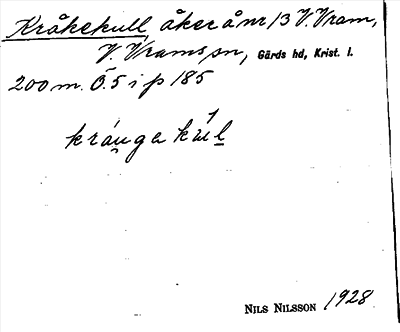 Kråkekull, åker å nr 13 V. Vram,
V. Vrams sn, Gärds hd, Krist. l.
200 m. Ö. 5 i p 185
kráu̯ga kul
NILS NILSSON 1928